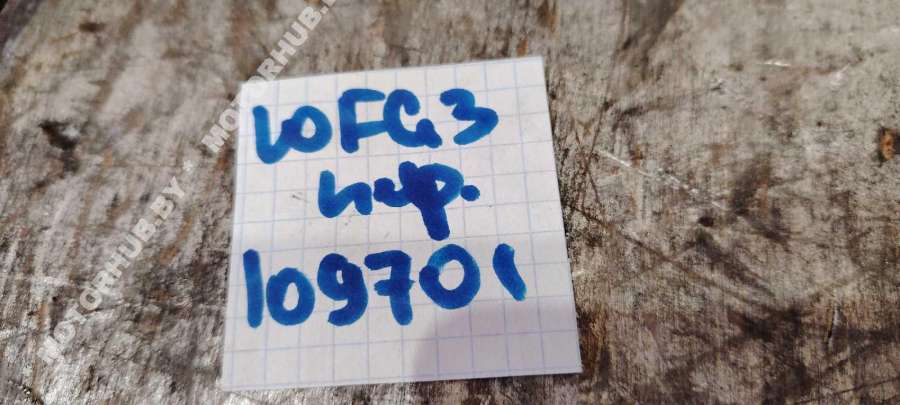 10FG3
109701
MOTORHUB.BY * MOTORHUB.BY